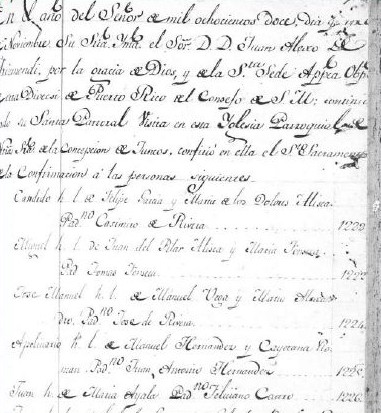 En el año del Señor de mil ochocientos doce, dia
Noviembre Su Sria. Yma. el Sor. D. D. Juan Alexo de
Arizmendi, por la gracia de Dios, y de la Sta. Sede Appca. Obpo.
Diocesi de Puerto Rico del Consejo de S. M.; continu
do su Santa Pastoral Visita en esta Yglesia Parroquial de
Ntra. Sra. de la Concepcion de Juncos, confirió en ella el Sto. Sacramento
de la Confirmacion á las personas siguientes
Candido h. l. de Felipe y Maria de los Dolores
Padno. Casimiro de Rivera 1222
Manuel h. l. de Juan del Pilar y Maria Fonseca
Pad. Tomas Fonseca 1223
Jose Manuel h. l. de Manuel Vega y Maria
Padno. Jose de Rivera 1224
Apolinario h. l. de Manuel Hernandez y Cayetana Ro-
man Padno. Juan Antonio Hernandez 1225
Juan h. de Maria Ayala Padno. Feliciano Castro 1226